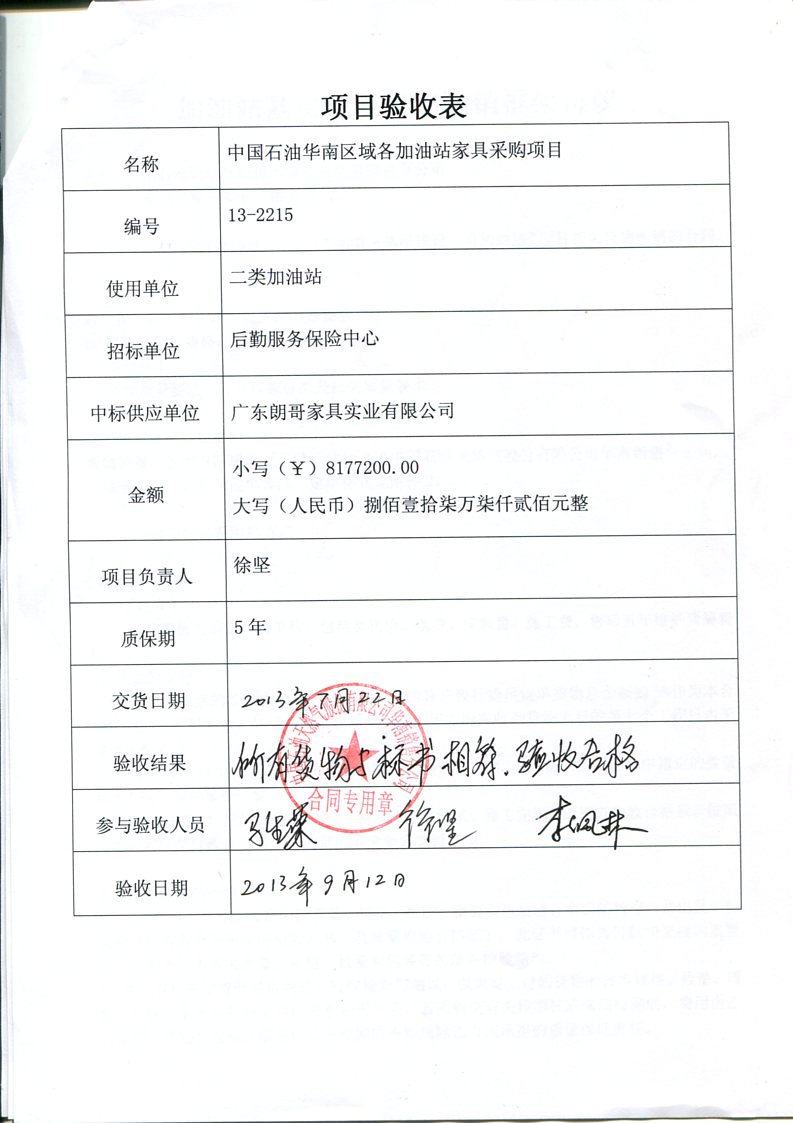 项目验收表
名称
中国石油华南区域各加油站家具采购项目
编号
13-2215
使用单位
二类加油站
招标单位
后勤服务保险中心
中标供应单位
广东朗哥家具实业有限公司
金额
小写（￥）8177200.00
大写（人民币）捌佰壹拾柒万柒仟贰佰元整
项目负责人
徐坚
质保期
5 年
交货日期
2013年7月23日
验收结果
所有货物与标书相符，验收合格
合同专用章
参与验收人员
徐坚
验收日期
2013年9月12日